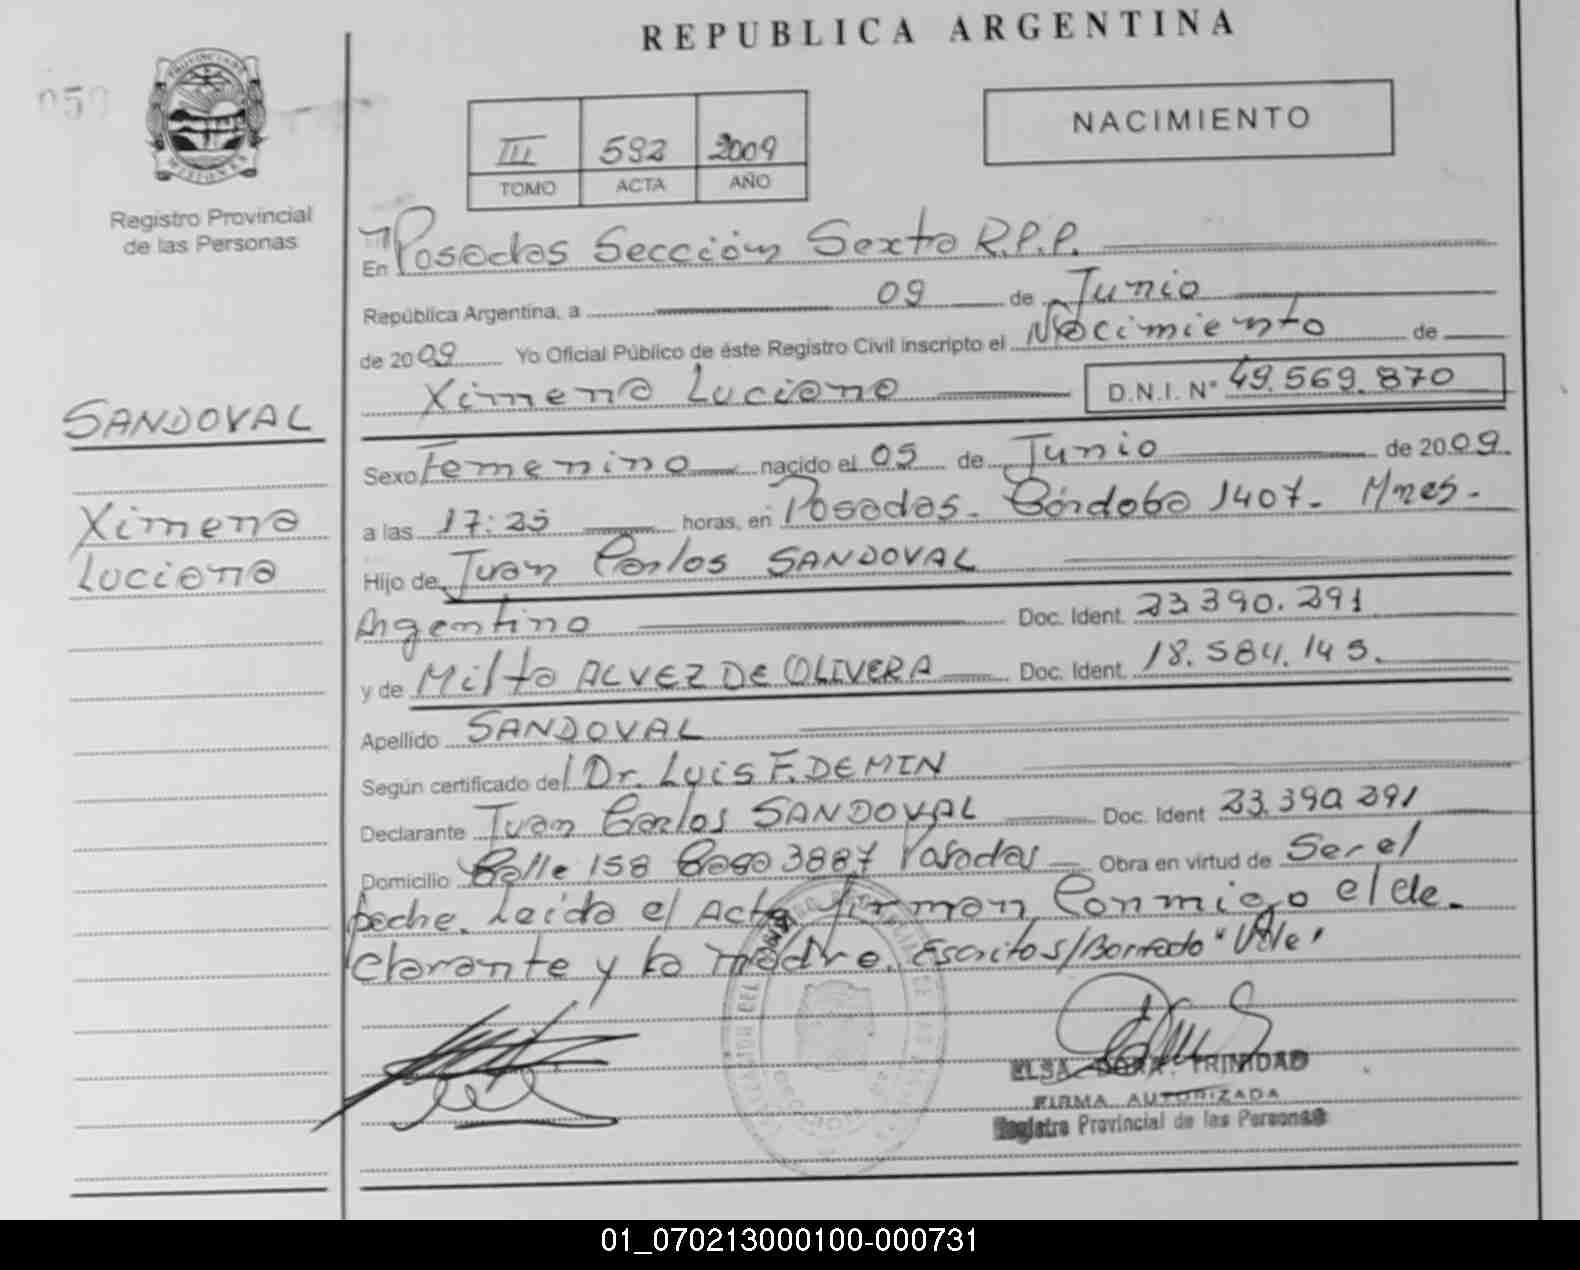 REPUBLICA ARGENTINA
059
PROVINCIA DE
MISIONES
Registro Provincial
de las Personas
III 592 2009
TOMO ACTA AÑO
NACIMIENTO
En Posadas Sección Sexta R.P.P.
República Argentina, a 09 de Junio
de 2009 Yo Oficial Público de éste Registro Civil inscripto el Nacimiento de
Ximena Luciana D.N.I. N° 49.569.870
SANDOVAL
Ximena
Luciana
Sexo Femenino nacido el 05 de Junio de 2009
a las 17:25 horas, en Posadas - Córdoba 1407 - Mnes -
Hijo de Juan Carlos SANDOVAL
Argentino Doc. Ident. 23.390.291
y de Milta ALVEZ DE OLIVERA Doc. Ident. 18.584.145.
Apellido SANDOVAL
Según certificado del Dr. Luis F. DEMIN
Declarante Juan Carlos SANDOVAL Doc. Ident 23.390.291
Domicilio Calle 158 Casa 3887 Posadas Obra en virtud de Ser el
padre. Leida el Acta firman Conmigo el de-
clarante y la madre. Escritos/Borrado "Vale"
ELSA DORA TRINIDAD
FIRMA AUTORIZADA
Registro Provincial de las Personas
01_070213000100-000731